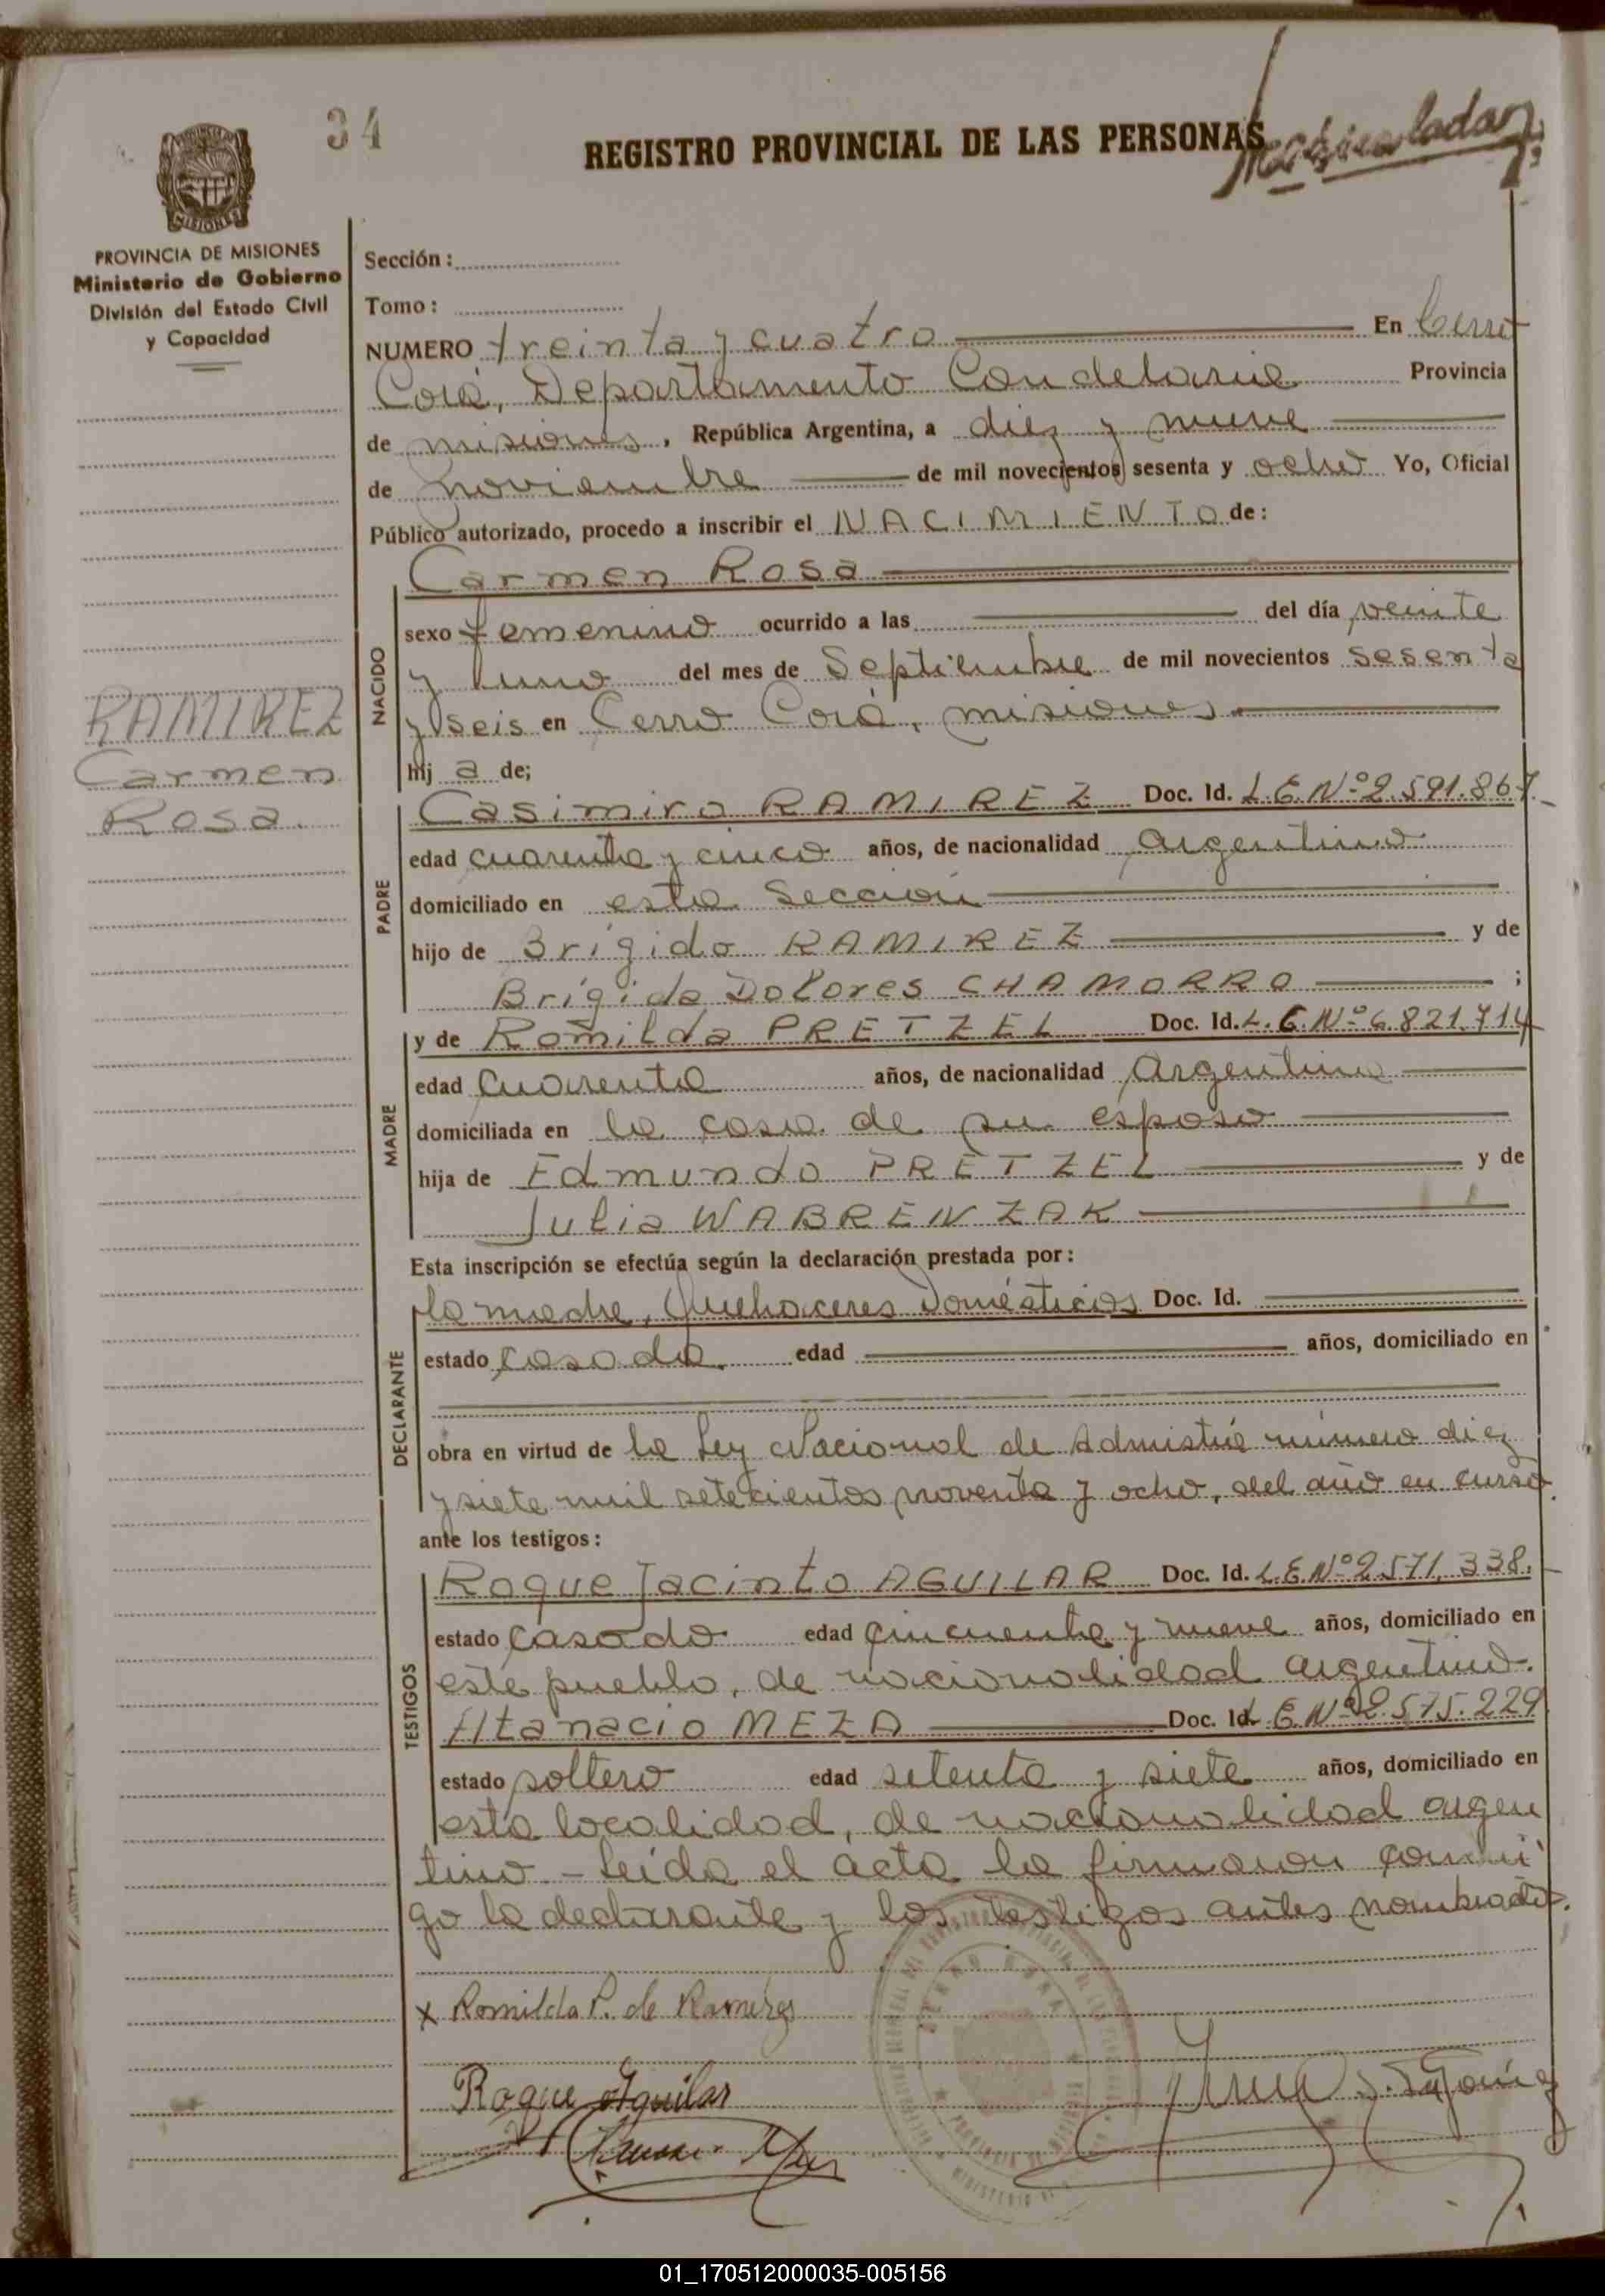 34
REGISTRO PROVINCIAL DE LAS PERSONAS
MISIONES
PROVINCIA DE MISIONES
Ministerio de Gobierno
División del Estado Civil
y Capacidad
Sección :
Tomo :
NUMERO treinta y cuatro En Cerro
Corá, Departamento Candelaria Provincia
de misiones, República Argentina, a diez y nueve
de noviembre de mil novecientos sesenta y ocho Yo, Oficial
Público autorizado, procedo a inscribir el NACIMIENTO de :
Carmen Rosa
NACIDO
sexo femenino ocurrido a las del día veinte
y uno del mes de Septiembre de mil novecientos sesenta
y seis en Cerro Corá, misiones
RAMIREZ
Carmen
Rosa.
hij a de;
PADRE
Casimiro RAMIREZ Doc. Id. L.E.Nº 2.591.867
edad cuarenta y cinco años, de nacionalidad Argentino
domiciliado en esta Sección
hijo de Brígido RAMIREZ y de
Brígida Dolores CHAMORRO ;
MADRE
y de Romilda PRETZEL Doc. Id. L.E.Nº 6.821.714
edad cuarenta años, de nacionalidad Argentina
domiciliada en la casa de su esposo
hija de Edmundo PRETZEL y de
Julia WABRENZAK
Esta inscripción se efectúa según la declaración prestada por :
DECLARANTE
la madre, Quehaceres Domésticos Doc. Id.
estado casada. edad años, domiciliado en
obra en virtud de la Ley Nacional de Admistía número diez
y siete mil setecientos noventa y ocho, del año en curso.
ante los testigos :
TESTIGOS
Roque Jacinto AGUILAR Doc. Id. L.E.Nº 2.571.338.
estado casado edad cincuenta y nueve años, domiciliado en
este pueblo, de nacionalidad argentino.
Atanacio MEZA Doc. Id. L.E.Nº 2.575.229
estado soltero edad setenta y siete años, domiciliado en
esta localidad, de nacionalidad argen
tino - Leída el acta la firmaron conmi
go la declarante y los testigos antes nombrados.
x Romilda P. de Ramirez
Roque Aguilar
01_170512000035-005156